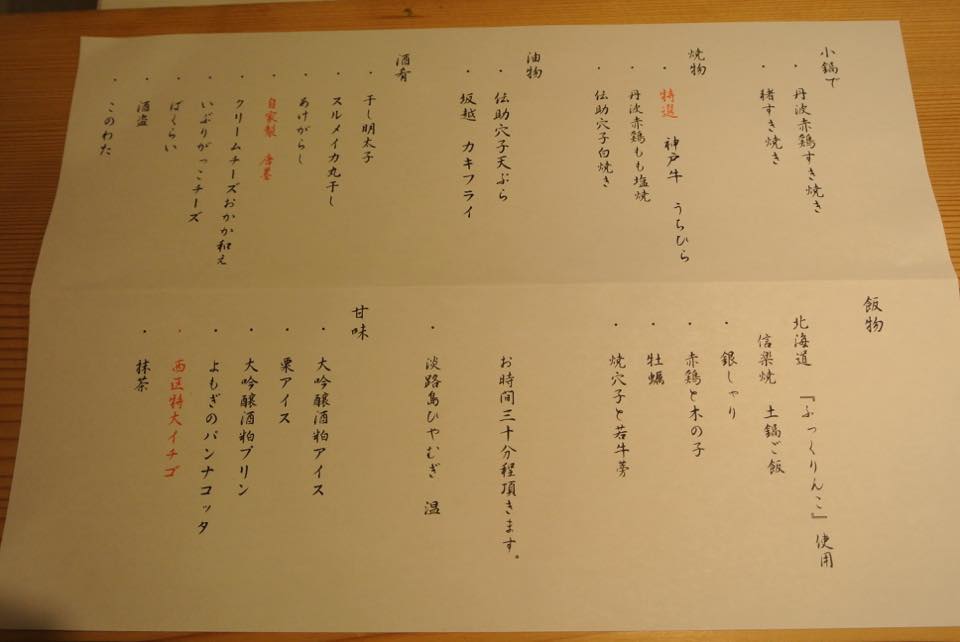 小鍋で
・丹波赤鶏すき焼き
・猪すき焼き
焼物
・特選 神戸牛 うちひら
・丹波赤鶏もも塩焼
・伝助穴子白焼き
油物
・伝助穴子天ぷら
・坂越 カキフライ
酒肴
・干し明太子
・スルメイカ丸干し
・あけがらし
・自家製 唐墨
・クリームチーズおかか和え
・いぶりがっこチーズ
・ばくらい
・酒盗
・このわた
飯物
北海道 『ふっくりんこ』使用
信楽焼 土鍋ご飯
・銀しゃり
・赤鶏と木の子
・牡蠣
・焼穴子と若牛蒡
お時間三十分程頂きます。
・淡路島ひやむぎ 温
甘味
・大吟醸酒粕アイス
・栗アイス
・大吟醸酒粕プリン
・よもぎのパンナコッタ
・西区特大イチゴ
・抹茶